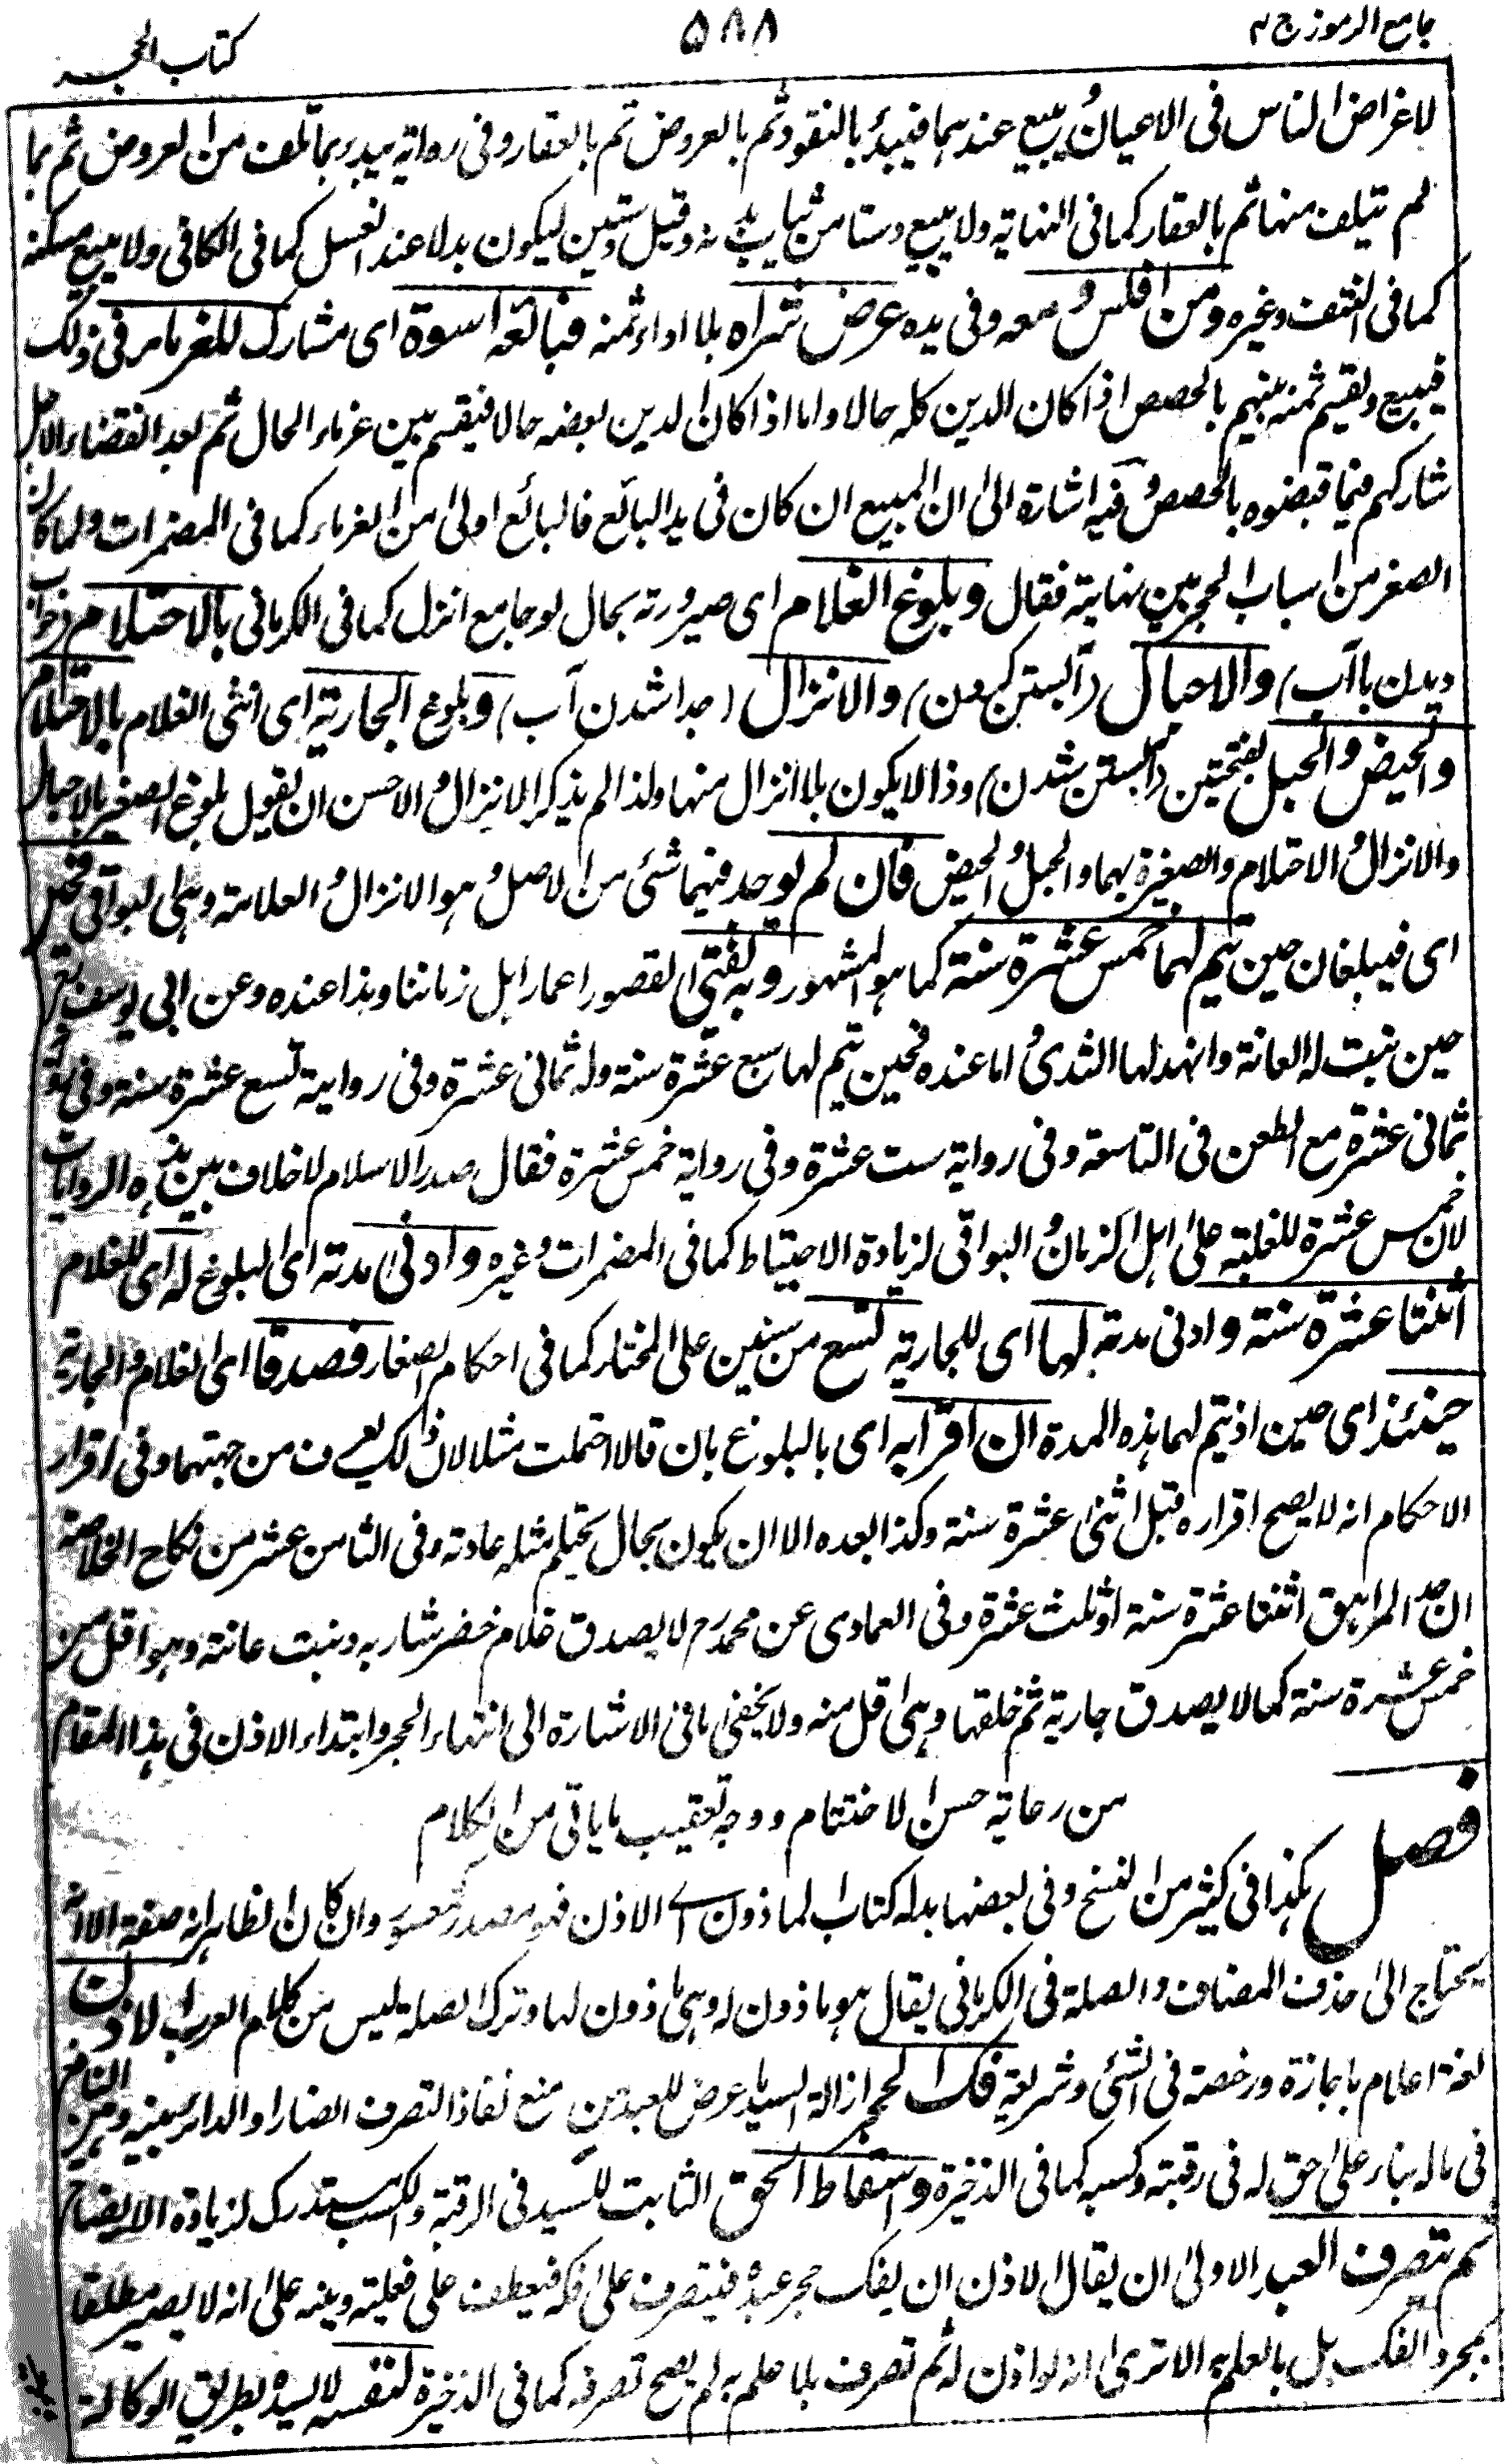 جامع الرموز ج ٢
٥٨٨
كتاب الحجر
لاغراض الناس فى الاعيان ويبيع عندهما فيبدأ بالنقود ثم بالعروض ثم بالعقار وفى رواية يبدء بما تلف من العروض ثم بما
لم يتلف منها ثم بالعقار كما فى النهاية ولا يبيع دستا من ثياب بدنه وقيل دستين ليكون بدلا عند الغسل كما فى الكافى ولا يبيع مسكنه
كما فى النتف وغيره ومن افلس ومعه وفى يده عرض شراه بلا اداء ثمنه فبائعه اسوة اى مشارك للغرماء فى ذلك
فيبيع ويقسم ثمنه بينهم بالحصص اذا كان الدين كله حالا واما اذا كان الدين بعضه حالا فيقسم بين غرماء الحال ثم بعد انقضاء الاجل
شاركهم فيما قبضوه بالحصص وفيه اشارة الى ان المبيع ان كان فى يد البائع فالبائع اولى من الغرماء كما فى المضمرات ولما كان
الصغر من اسباب الحجر بين نهايته فقال وبلوغ الغلام اى صيرورته بحال لو جامع انزل كما فى الكرمانى بالاحتلام (خواب
ديدن باآب) والاحبال (آبستن كردن) والانزال (جدا شدن آب) وبلوغ الجارية اى انثى الغلام بالاحتلام
والحيض والحبل بفتحتين (آبستن شدن) وذا لا يكون بلا انزال منها ولذا لم يذكر الانزال والاحسن ان يقول بلوغ الصغير بالاحبال
والانزال والاحتلام والصغيرة بهما والحبل والحيض فان لم يوجد فيهما شئ من الاصل وهو الانزال والعلامة وهى البواقى فحين
اى فيبلغان حين يتم لهما خمس عشرة سنة كما هو المشهور وبه يفتى لقصور اعمار اهل زماننا وهذا عنده وعن ابى يوسف
حين نبت له العانة وانهد لها الثدى واما عنده فحين يتم لها سبع عشرة سنة وله ثمانى عشرة وفى رواية تسع عشرة سنة وفى
ثمانى عشرة مع الطعن فى التاسعة وفى رواية ست عشرة وفى رواية خمس عشرة فقال صدر الاسلام لا خلاف بين هذه الروايات
لان خمس عشرة للغلبة على اهل الزمان والبواقى لزيادة الاحتياط كما فى المضمرات وغيره وادنى مدته اى البلوغ له اى للغلام
اثنتا عشرة سنة وادنى مدته لها اى للجارية تسع من سنين على المختار كما فى احكام الصغار فصدقا اى الغلام والجارية
حينئذ اى حين اذ يتم لهما هذه المدة ان اقرا به اى بالبلوغ بان قالا احتملت مثلا لان ذلك يعرف من جهتهما وفى اقرار
الاحكام انه لا يصح اقراره قبل اثنى عشرة سنة وكذا بعده الا ان يكون بحال يحتلم مثله عادة وفى الثامن عشر من نكاح الخلاصة
ان حد المراهق اثنتا عشرة سنة او ثلث عشرة وفى العمادى عن محمد رح لا يصدق غلام خضر شاربه ونبت عانته وهو اقل من
خمس عشرة سنة كما لا يصدق جارية تم خلقها وهى اقل منه ولا يخفى ما فى الاشارة الى انتهاء الحجر وابتداء الاذن فى هذا المقام
من رعاية حسن الاختتام ووجه تعقيب ما ياتى من الكلام
فصل هكذا فى كثير من النسخ وفى بعضها بدله كتاب الماذون اى الاذن فهو مصدر وان كان الظاهر انه صفة الا انه
يحتاج الى حذف المضاف والصلة فى الكرمانى يقال هو ماذون له وهى ماذون لها وترك الصلة ليس من كلام العرب الاذن
لغة اعلام باجازة ورخصة فى الشئ وشريعة فك الحجر ازالة السيد ما عرض للعبد من منع نفاذ التصرف الضار او الدائر بينه وبين النافع
فى ماله بناء على حق له فى رقبته وكسبه كما فى الذخيرة واسقاط الحق الثابت للسيد فى الرقبة والكسب مستدرك لزيادة الايضاح
ثم يتصرف العبد والاولى ان يقال الاذن ان يفك حجر عبده فيتصرف على فكه فيعطف على فعليته وينبه على انه لا يصير مطلقا
بمجرد الفك بل بالعلم به الا ترى انه لو اذن له ثم تصرف بلا علم به لم يصح تصرفه كما فى الذخيرة لنفسه لا لسيده بطريق الوكالة